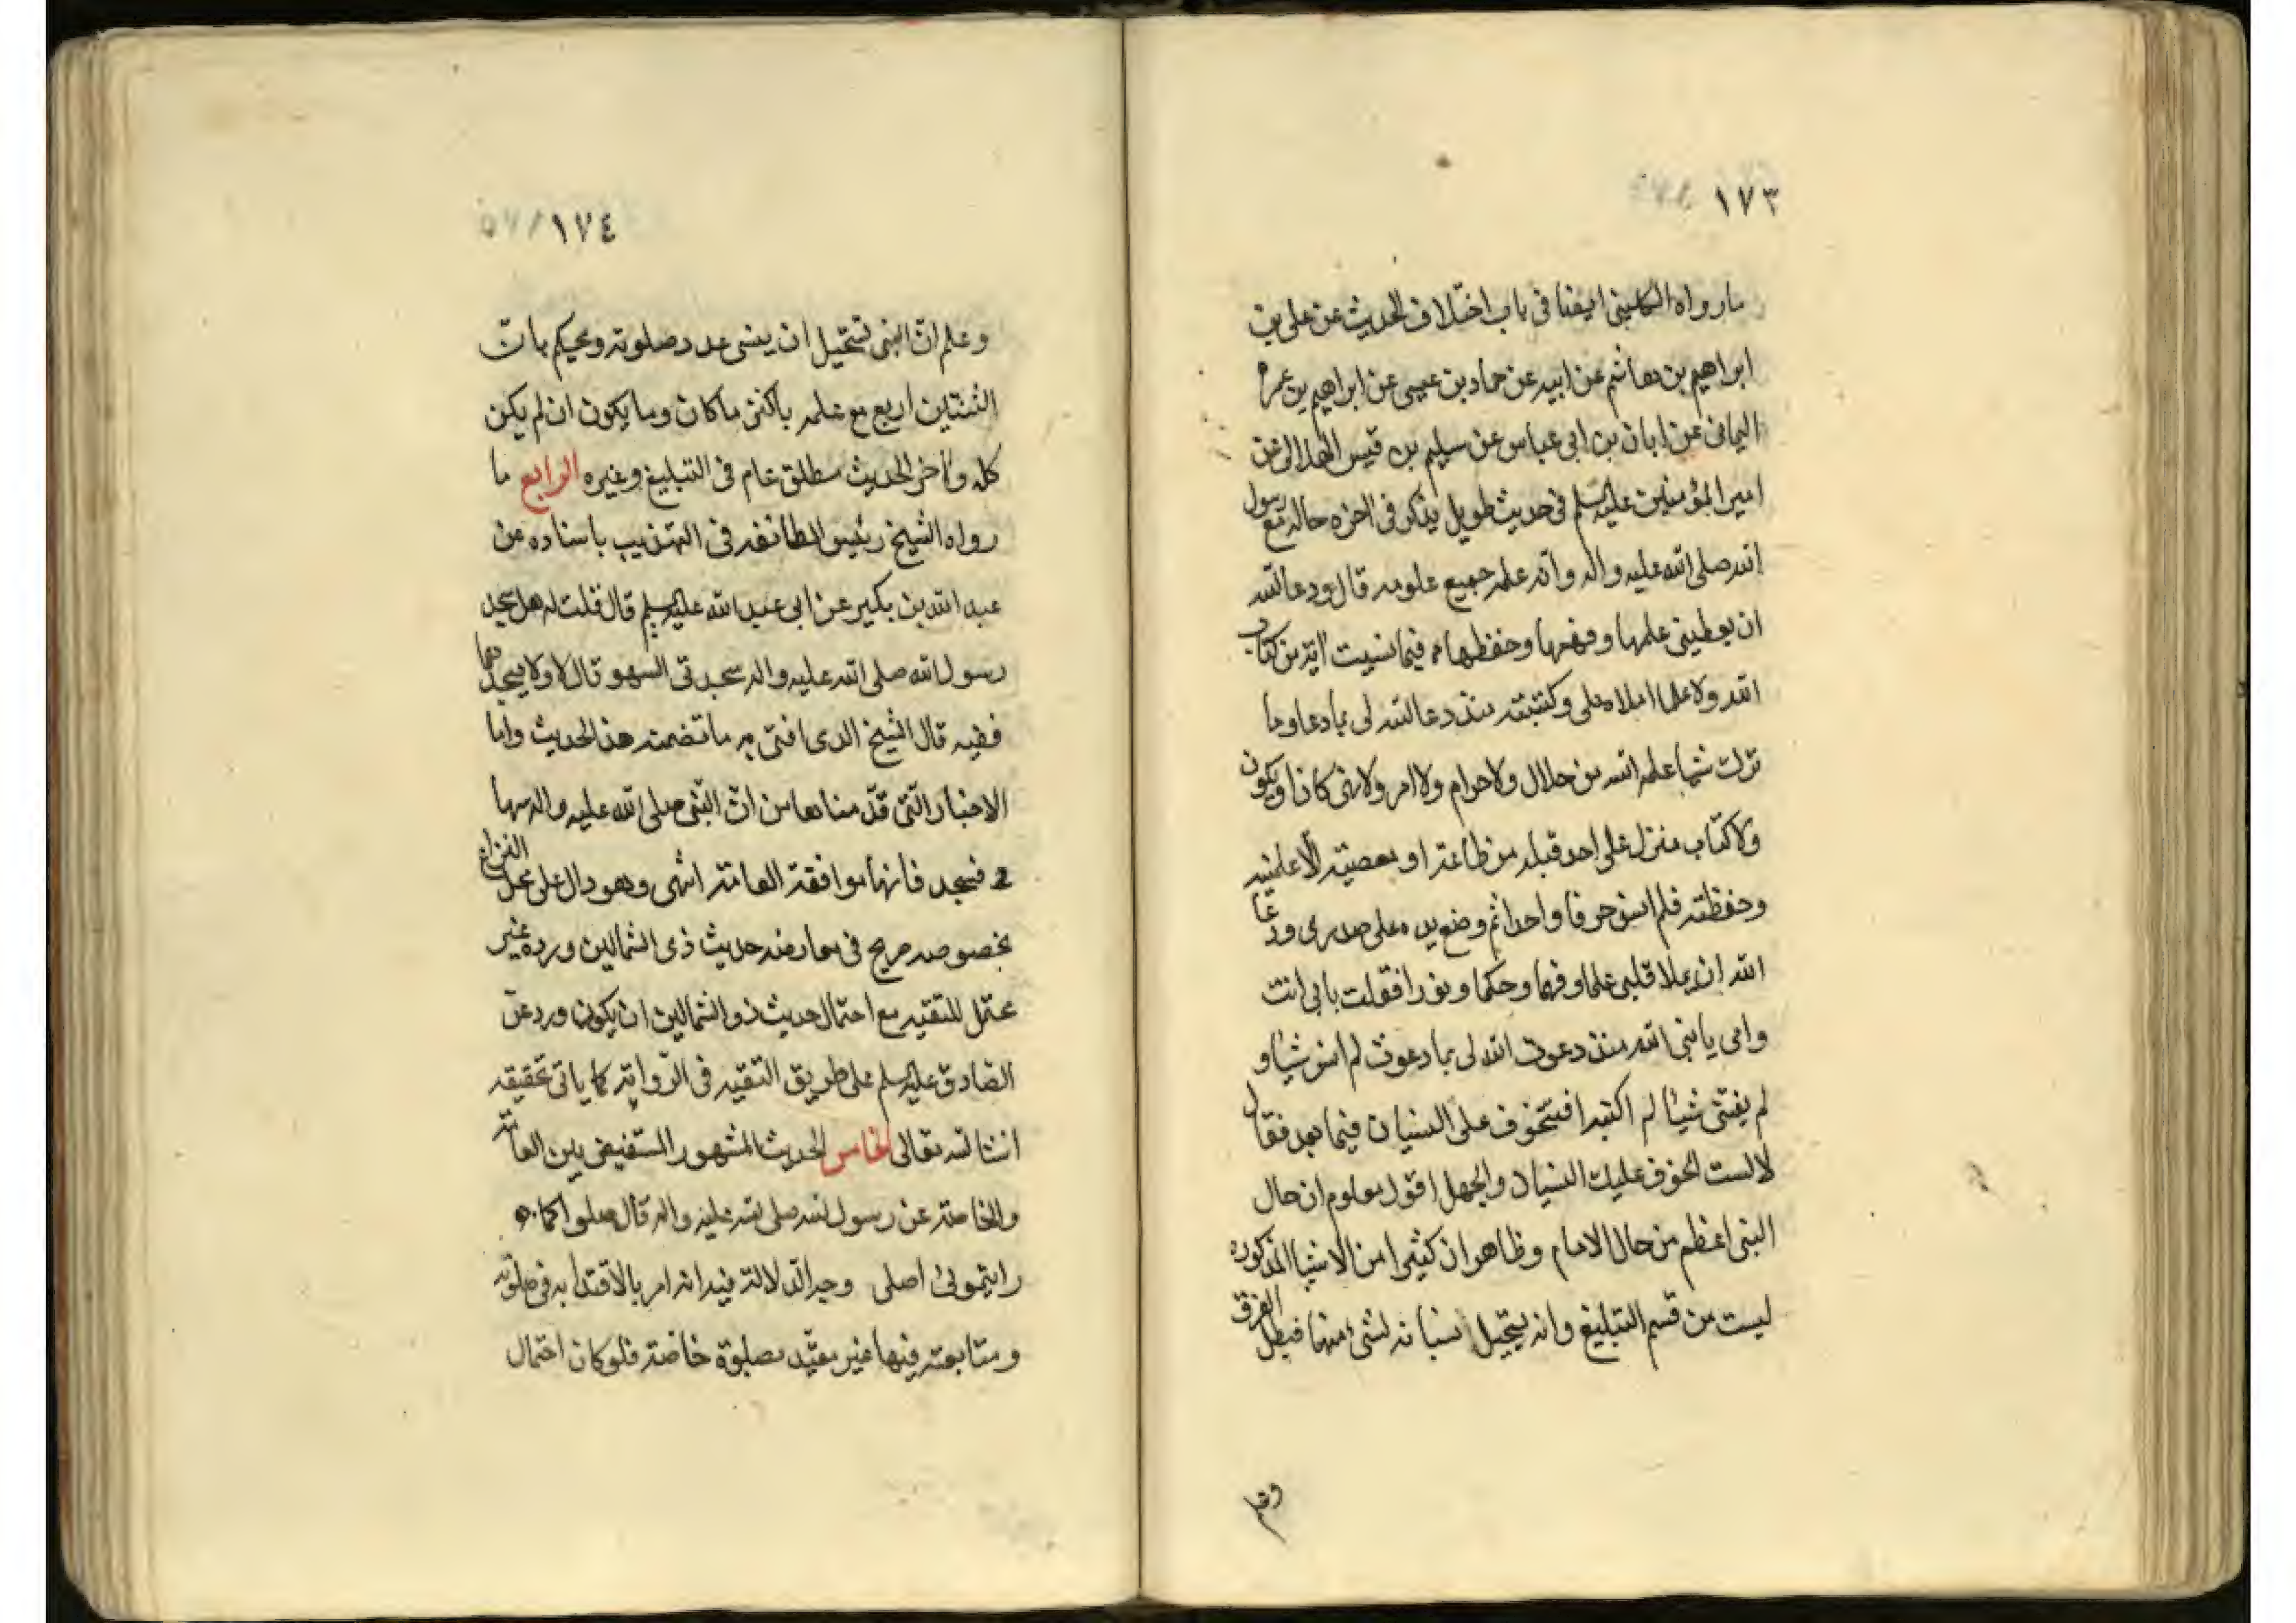 ١٧٣
ما رواه الكليني ايضا في باب اختلاف الحديث عن علي بن
ابراهيم بن هاشم عن ابيه عن حماد بن عيسى عن ابراهيم بن عمر
اليماني عن ابان بن ابي عياش عن سليم بن قيس الهلالي عن
امير المؤمنين عليه السلم في حديث طويل يذكر في اخره حاله مع رسول
الله صلى الله عليه واله وانه علمه جميع علومه قال ودعا الله
ان يعطيني علمها وفهمها وحفظها فما نسيت اية من كتاب
الله ولا علما املاه علي وكتبته منذ دعا الله لي بما دعا وما
ترك شيئا علمه الله من حلال ولا حرام ولا امر ولا نهي كان او يكون
ولا كتاب منزل على احد قبله من طاعة او معصية الا علمنيه
وحفظته فلم انس حرفا واحدا ثم وضع يده على صدري ودعا
الله ان يملا قلبي علما وفهما وحكما ونورا فقلت بابي انت
وامي يا نبي الله منذ دعوت الله لي بما دعوت لم انس شيئا و
لم يفتني شيئا لم اكتبه افتتخوف على النسيان فيما بعد فقال
لا لست اتخوف عليك النسيان والجهل اقول معلوم ان حال
النبي اعظم من حال الامام وظاهر ان كثيرا من الاشياء المذكوره
ليست من قسم التبليغ وانه يستحيل نسيانه لشيء منها فبطل الفرق
وعلم
١٧٤
وعلم ان النبي تستحيل ان ينسى عدد صلوته ويحكم بان
الثنتين اربع مع علمه باكثر ما كان وما يكون ان لم يكن
كله واخر الحديث مطلق عام في التبليغ وغيره الرابع ما
رواه الشيخ رئيس الطائفه في التهذيب باسناده عن
عبد الله بن بكير عن ابي عبد الله عليه السلم قال قلت له هل سجد
رسول الله صلى الله عليه واله سجدتي السهو قال لا ولا يسجدهما
فقيه قال الشيخ الذي افتي به ما تضمنه هذا الحديث واما
الاخبار التي قدمناها من ان النبي صلى الله عليه واله سها
فسجد فانها موافقة العامة انتهى وهو دال على محل النزاع
بخصوصه صريح في معارضه حديث ذي الشمالين ورده غير
محتمل للتقيه مع احتمال حديث ذو الشمالين ان يكون ورد عن
الصادق عليه السلم على طريق التقيه في الرواية كما ياتي تحقيقه
انشا الله تعالى الخامس الحديث المشهور المستفيض بين العامة
والخاصة عن رسول الله صلى الله عليه واله قال صلوا كما
رايتموني اصلي وجه الدلالة فيه انه امر بالاقتدا به في صلوته
ومتابعته فيها غير مقيد بصلوة خاصة فلو كان احتمال